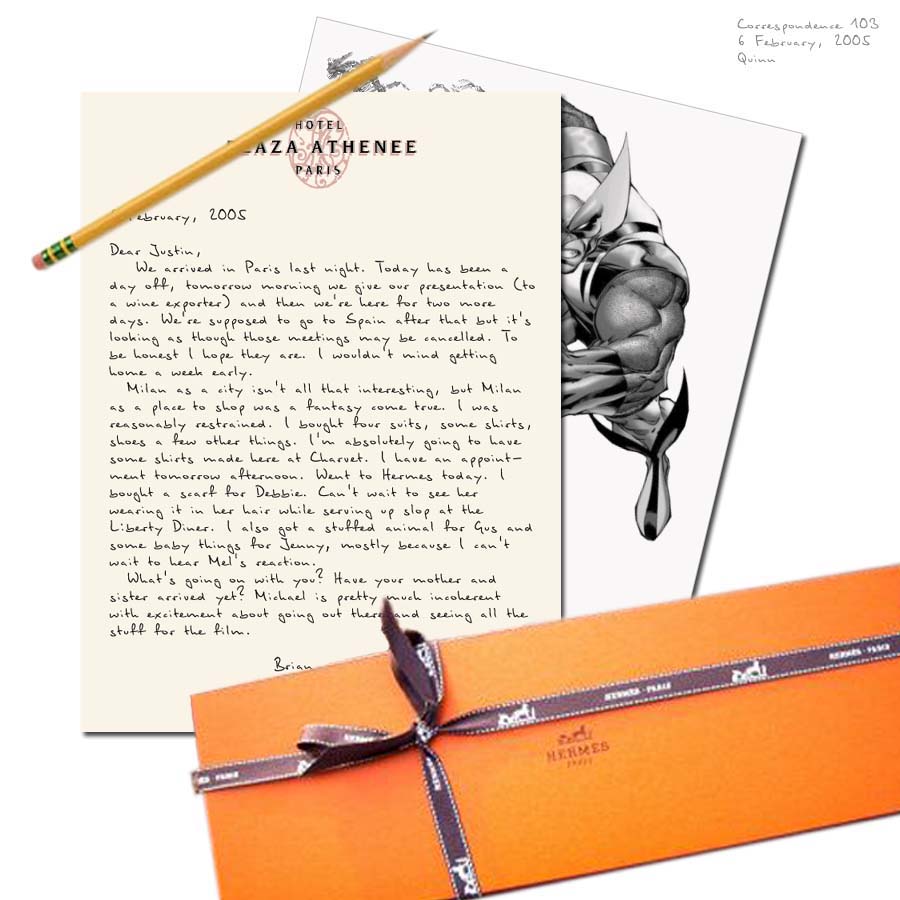 Correspondence 103
6 February, 2005
Quinn
HOTEL
PLAZA ATHENEE
PARIS
February, 2005
Dear Justin,
We arrived in Paris last night. Today has been a
day off, tomorrow morning we give our presentation (to
a wine exporter) and then we're here for two more
days. We're supposed to go to Spain after that but it's
looking as though those meetings may be cancelled. To
be honest I hope they are. I wouldn't mind getting
home a week early.
Milan as a city isn't all that interesting, but Milan
as a place to shop was a fantasy come true. I was
reasonably restrained. I bought four suits, some shirts,
shoes a few other things. I'm absolutely going to have
some shirts made here at Charvet. I have an appoint-
ment tomorrow afternoon. Went to Hermes today. I
bought a scarf for Debbie. Can't wait to see her
wearing it in her hair while serving up slop at the
Liberty Diner. I also got a stuffed animal for Gus and
some baby things for Jenny, mostly because I can't
wait to hear Mel's reaction.
What's going on with you? Have your mother and
sister arrived yet? Michael is pretty much incoherent
with excitement about going out there and seeing all the
stuff for the film.
Brian
HERMES - PARIS
HERMES - PARIS
HERMES
PARIS
HERMES
PARIS
HERMES